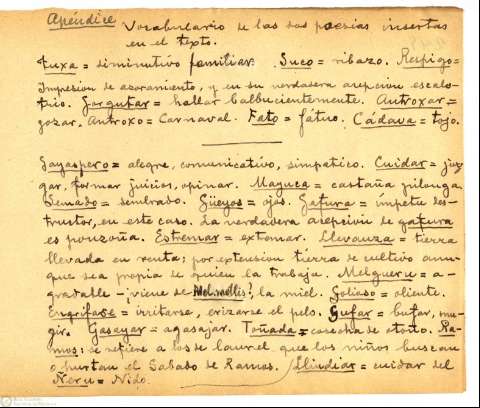 Apéndice
Vocabulario de las dos poesías insertas
en el texto.
Tuxa = diminutivo familiar. Suco = ribazo. Respigo =
Impresion de azoramiento, y en su verdadera acepcion escalo-
frio. Gorgutar = hablar balbucientemente. Antroxar =
gozar. Antroxo = Carnaval. Fato = fátuo. Cádava = tojo.
Gayaspero = alegre, comunicativo, simpatico. Cuidar = juz
gar, formar juicios, opinar. Maguca = castaña pilonga
Semado = sembrado. Güeyos = ojos. Gafura = impetu des-
tructor, en este caso. La verdadera acepcion de gafura
es ponzoña. Estremar = extornar. Llevanza = tierra
llevada en renta; por extension tierra de cultivo aun-
que sea propia de quien la trabaja. Melgueru = a-
gradable - viene de Mel, mellis, la miel. Golioso = oliente.
Engrifase = irritarse, erizarse el pelo. Sufar = bufar, mu-
gir. Gasayar = agasajar. Toñada = cosecha de otoño. Ra-
mos: se refiere a los de laurel que los niños buscan
o hurtan el Sabado de Ramos. Llindiar = cuidar del
Ñeru = Nido.